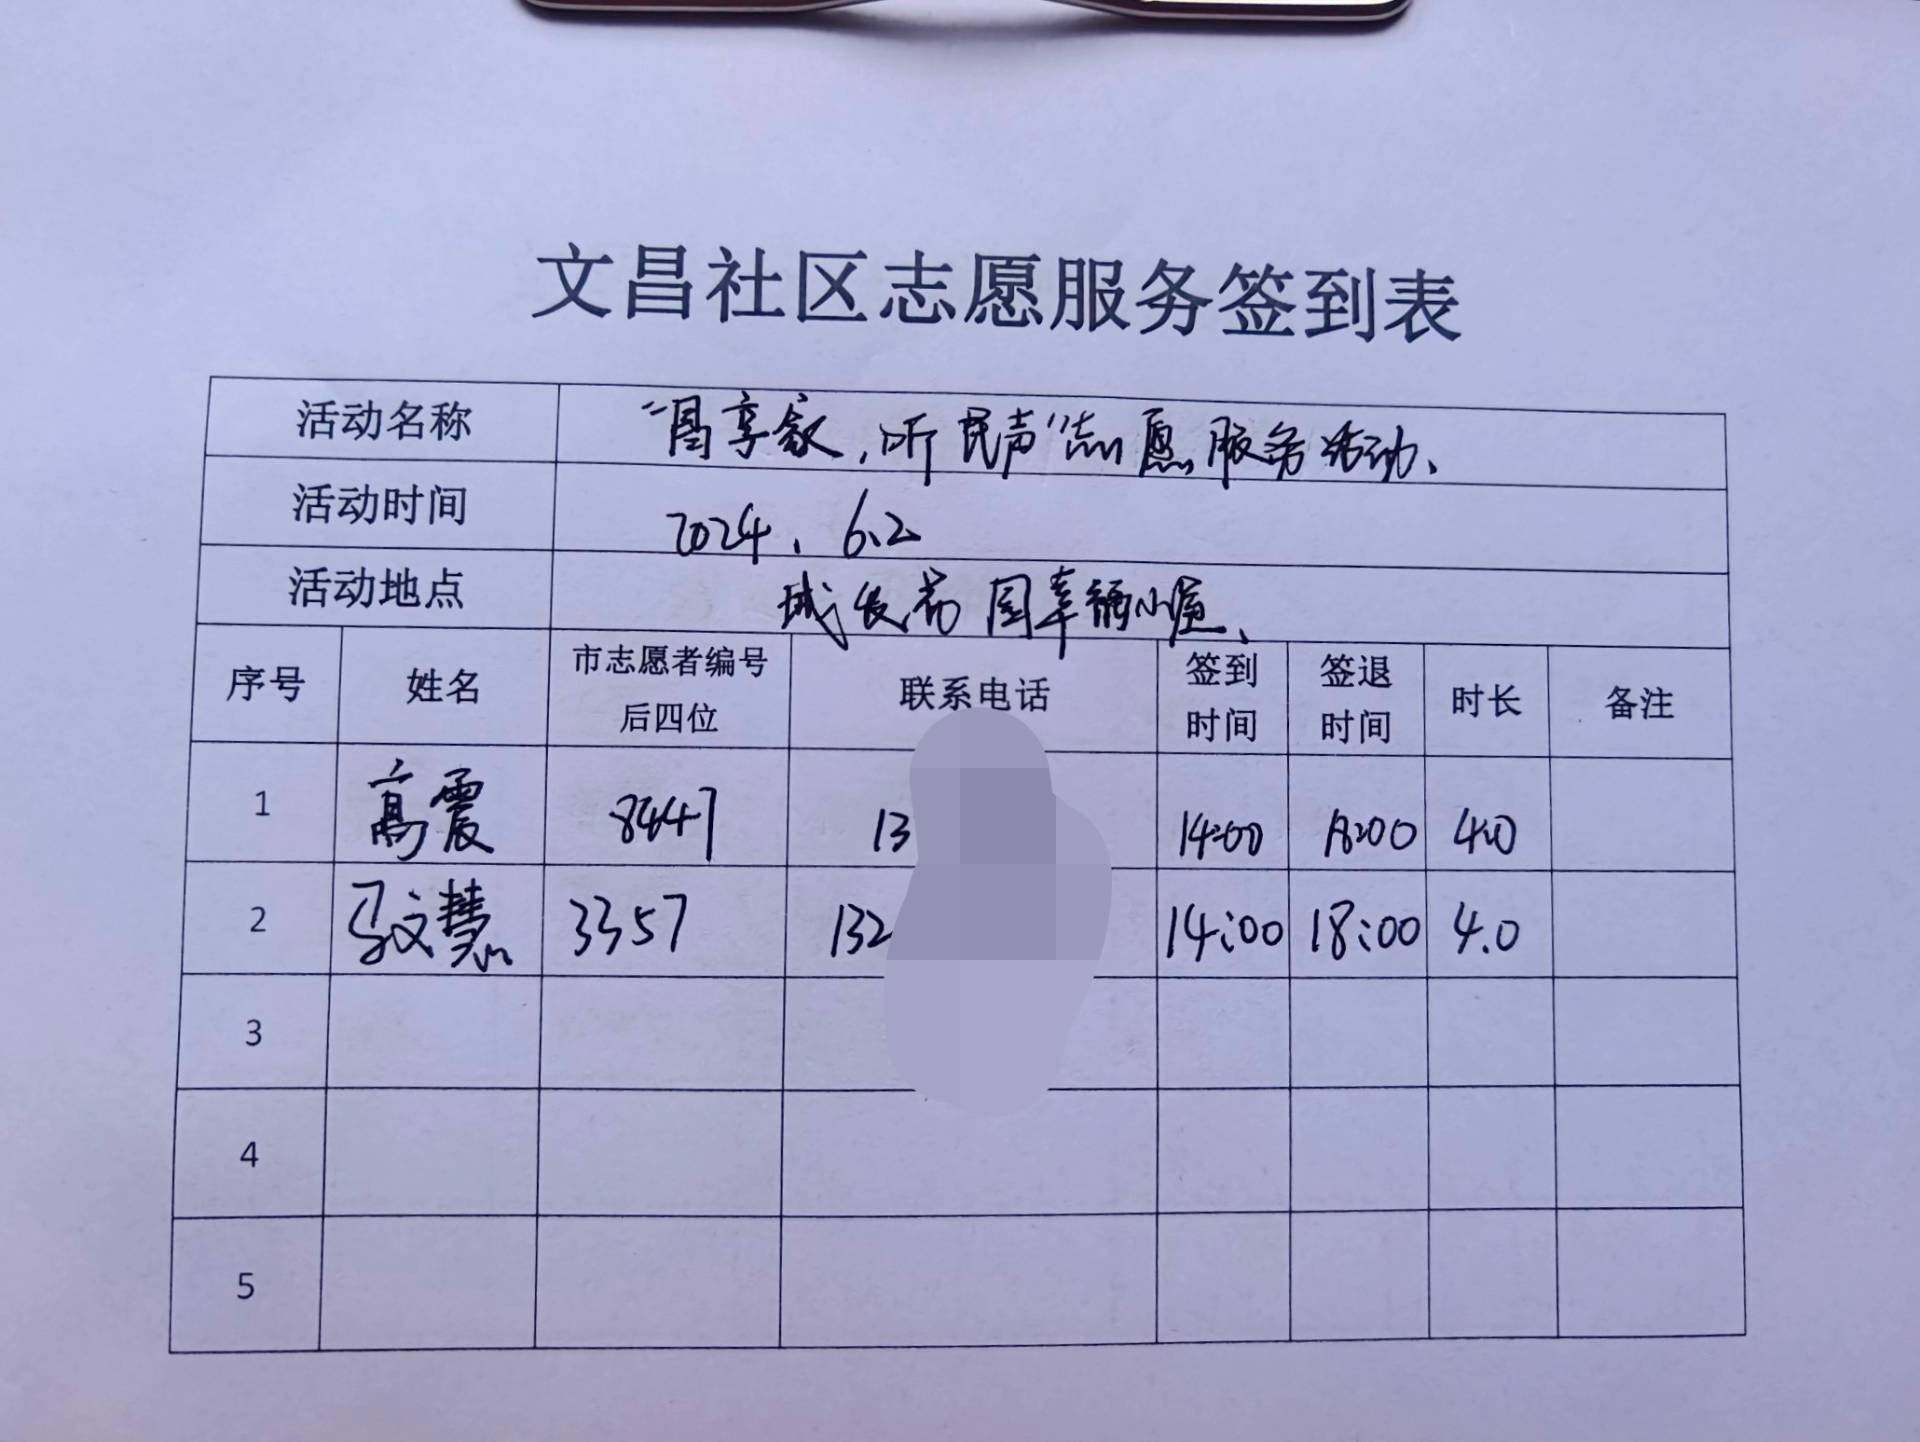 文昌社区志愿服务签到表
活动名称 "昌享家,听民声"志愿服务活动、
活动时间 2024.6.2
活动地点
序号 姓名 市志愿者编号后四位 联系电话 签到时间 签退时间 时长 备注
1 高震 8447 13 14:00 18:00 4.0
2 马文慧 3357 132 14:00 18:00 4.0
3
4
5